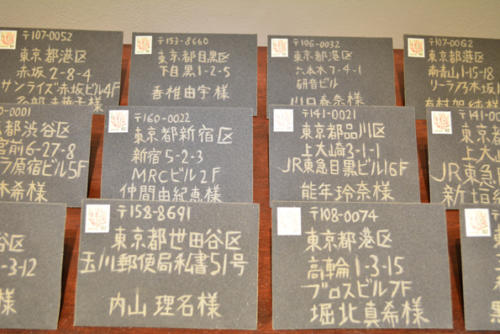 〒107-0052
東京都港区
赤坂2-8-4
サンライズ赤坂ビル4F
〒153-8660
東京都目黒区
下目黒1-2-5
香椎由宇様
〒106-0032
東京都港区
六本木7-4-1
研音ビル
川口春奈様
〒107-0062
東京都港区
南青山1-15-18
リーラ乃木坂1
有村架純様
0001
都渋谷区
宮前6-27-8
ラ原宿ビル5F
木希様
〒160-0022
東京都新宿区
新宿5-2-3
MRCビル2F
仲間由紀恵様
〒141-0021
東京都品川区
上大崎3-1-1
JR東急目黒ビル16F
能年玲奈様
〒141-0
東京都
上大
JR東急
新垣
谷区
-3-12
様
〒158-8691
東京都世田谷区
玉川郵便局私書51号
内山理名様
〒108-0074
東京都港区
高輪1-3-15
プロスビル7F
堀北真希様